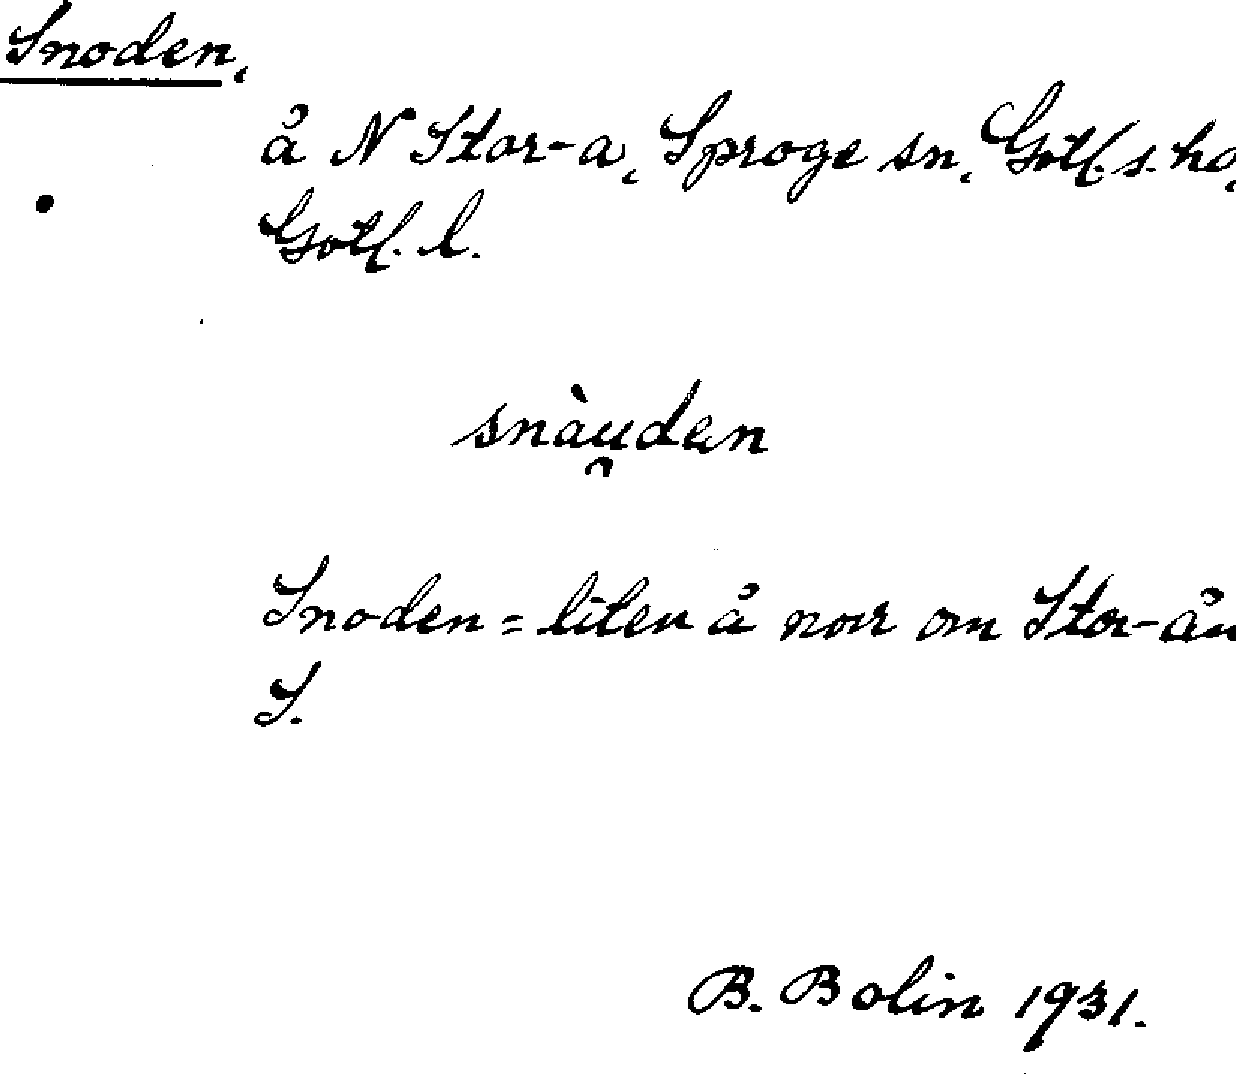 Snoden,
å N Stor-a, Sproge sn, Gotl. s. hd,
Gotl. l.
snàu̯den
Snoden = liten å norr om Stor-ån
S.
B. Bolin 1931.